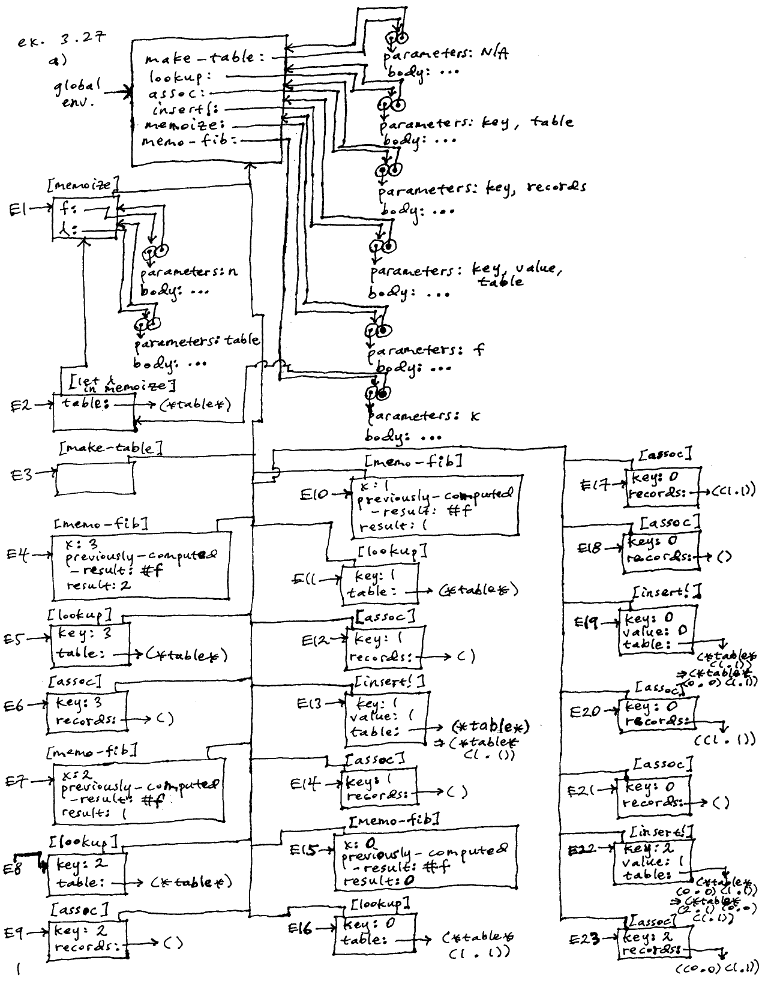 ex. 3.27
a)
global
env.
make-table:
lookup:
assoc:
insert!:
memoize:
memo-fib:
parameters: N/A
body: ...
parameters: key, table
body: ...
parameters: key, records
body: ...
parameters: key, value,
table
body: ...
parameters: f
body: ...
parameters: x
body: ...
[memoize]
E1
f:
λ:
parameters: n
body: ...
parameters: table
body: ...
[let λ
in memoize]
E2
table:
(*table*)
[make-table]
E3
[memo-fib]
E4
x: 3
previously-computed
-result: #f
result: 2
[lookup]
E5
key: 3
table:
(*table*)
[assoc]
E6
key: 3
records:
()
[memo-fib]
E7
x: 2
previously-computed
-result: #f
result: 1
[lookup]
E8
key: 2
table:
(*table*)
[assoc]
E9
key: 2
records:
()
[memo-fib]
E10
x: 1
previously-computed
-result: #f
result: 1
[lookup]
E11
key: 1
table:
(*table*)
[assoc]
E12
key: 1
records:
()
[insert!]
E13
key: 1
value: 1
table:
(*table*)
⇒ (*table*
(1 . 1))
[assoc]
E14
key: 1
records:
()
[memo-fib]
E15
x: 0
previously-computed
-result: #f
result: 0
[lookup]
E16
key: 0
table:
(*table*
(1 . 1))
[assoc]
E17
key: 0
records:
((1 . 1))
[assoc]
E18
key: 0
records:
()
[insert!]
E19
key: 0
value: 0
table:
(*table*
(1 . 1))
⇒ (*table*
(0 . 0) (1 . 1))
[assoc]
E20
key: 0
records:
((1 . 1))
[assoc]
E21
key: 0
records:
()
[insert!]
E22
key: 2
value: 1
table:
(*table*
(0 . 0) (1 . 1))
⇒ (*table*
(2 . 1) (0 . 0)
(1 . 1))
[assoc]
E23
key: 2
records:
((0 . 0) (1 . 1))